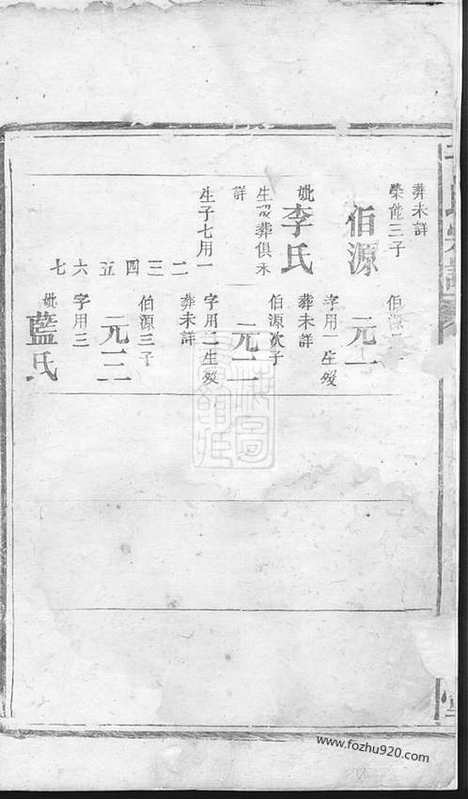 葬未詳
榮能三子
伯源
妣李氏
生歿葬俱未
詳
生子七用一
二
三
四
五
六
七
伯源
元一
字用一生歿
葬未詳
伯源次子
元二
字用二生歿
葬未詳
伯源三子
元三
字用三
妣藍氏
www.fozhu920.com